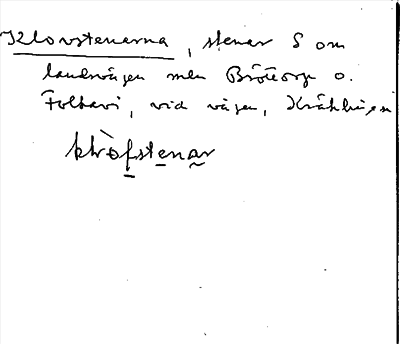 Klovstenarna, stenar S om
landsvägen mln Brötorp o.
Folkavi, vid vägen, Kräklingen
klòfstenar